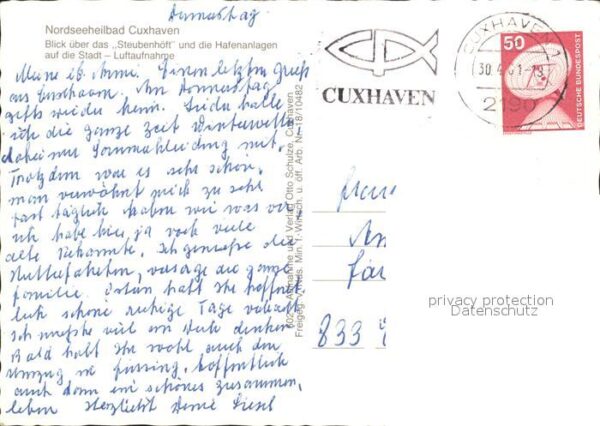 Donnerstag
Nordseeheilbad Cuxhaven
Blick über das „Steubenhöft" und die Hafenanlagen
auf die Stadt – Luftaufnahme
Meine lb. Anni. Einen letzten Gruß
aus Cuxhaven. Am Donnerstag
geht's wieder heim. Leider hatte
ich die ganze Zeit Winterwetter,
daheim nur Sommerkleidung mit.
Trotzdem war es sehr schön,
man verwöhnt mich zu sehr
fast täglich haben wir was vor,
ich habe hier ja noch viele
alte Bekannte. Ich genieße die
Mutterfahrten, versorge die ganze
Familie. Ostern habt Ihr hoffent-
lich schöne ruhige Tage verlebt
Ich mußte viel an Dich denken
Bald habt Ihr wohl auch den
Umzug hoffentlich
auch dann ein schönes Zusammen-
leben Herzlichst Deine Liesel
602 Aufnahme und Verlag Otto Schulze, Cuxhaven
Freigeg. Nieds. Min. f. Wirtsch. u. öff. Arb. Nr. 18/10482
CUXHAVEN
CUXHAVEN 1
30.4.81-15
2190
50
DEUTSCHE BUNDESPOST
833
privacy protection
Datenschutz